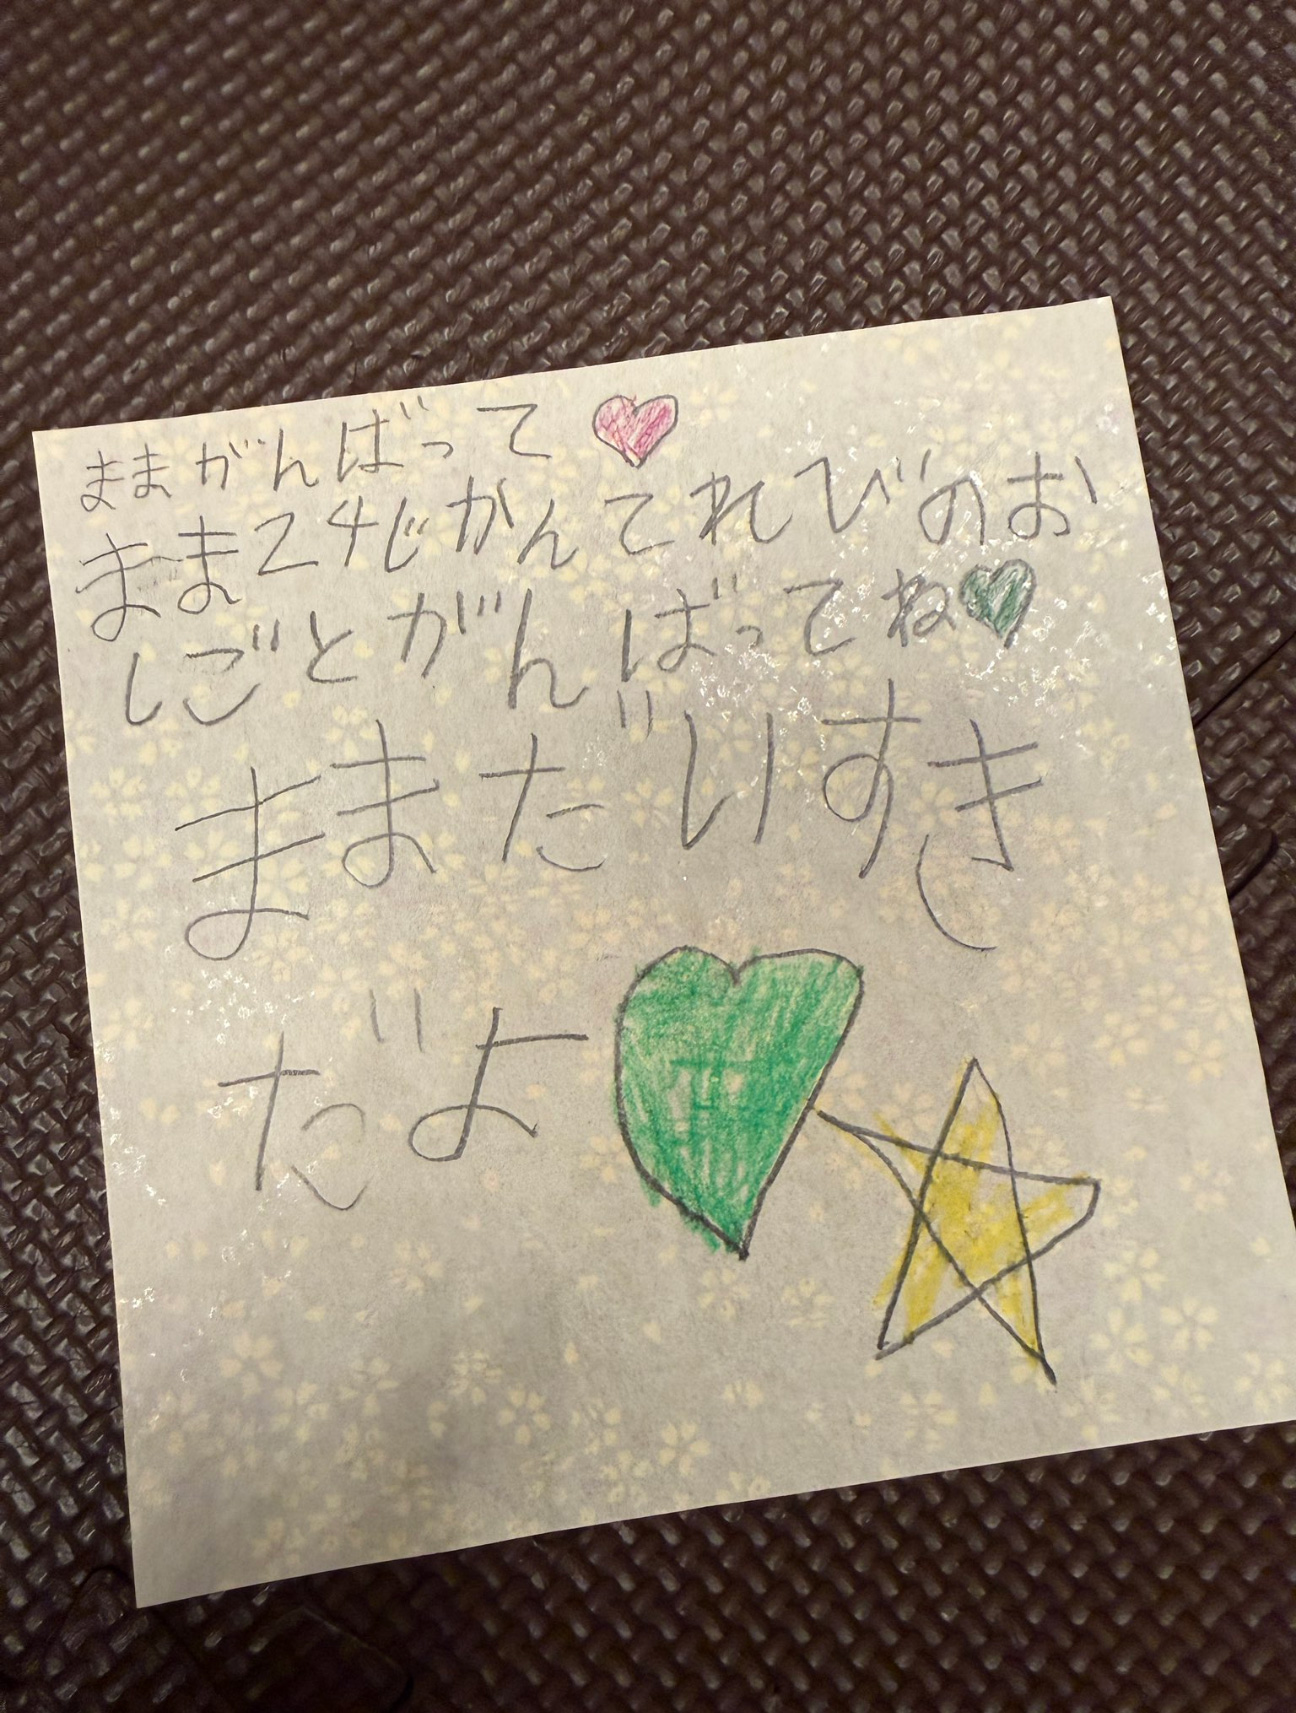 ままがんばって
まま24じかんてれびのお
しごとがんばってね
ままだいすき
だよ